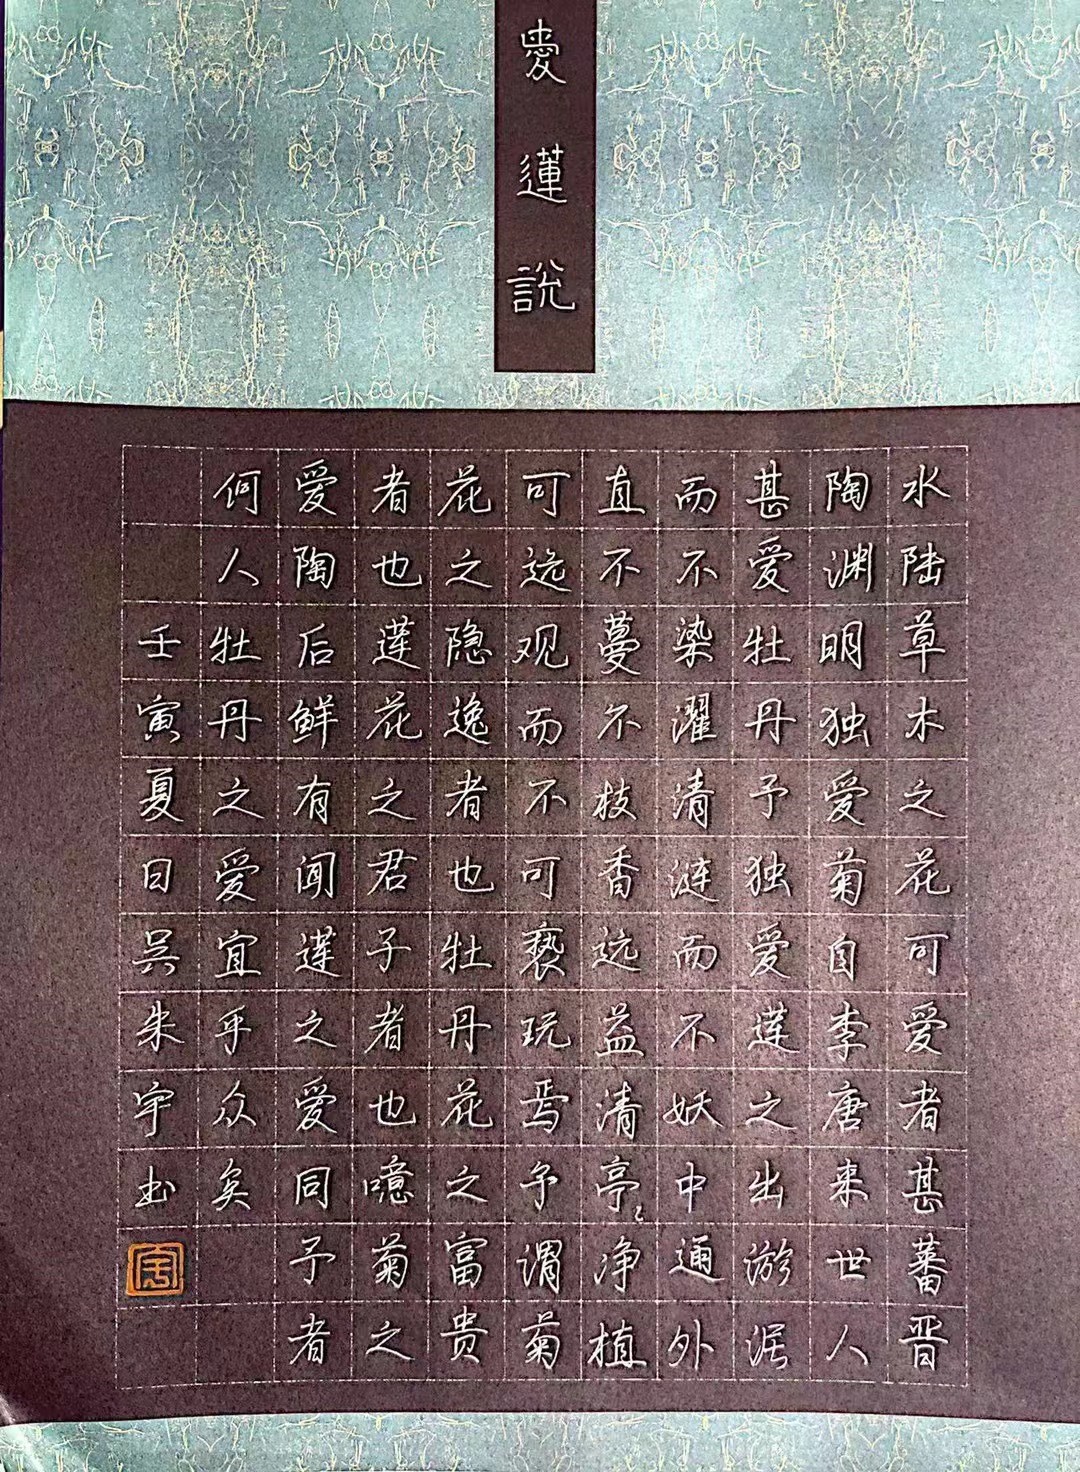 愛蓮說
水陆草木之花可爱者甚蕃晋
陶渊明独爱菊自李唐来世人
甚爱牡丹予独爱莲之出淤泥
而不染濯清涟而不妖中通外
直不蔓不枝香远益清亭々净植
可远观而不可亵玩焉予谓菊
花之隐逸者也牡丹花之富贵
者也莲花之君子者也噫菊之
爱陶后鲜有闻莲之爱同予者
何人牡丹之爱宜乎众矣
壬寅夏日吴朱宇书